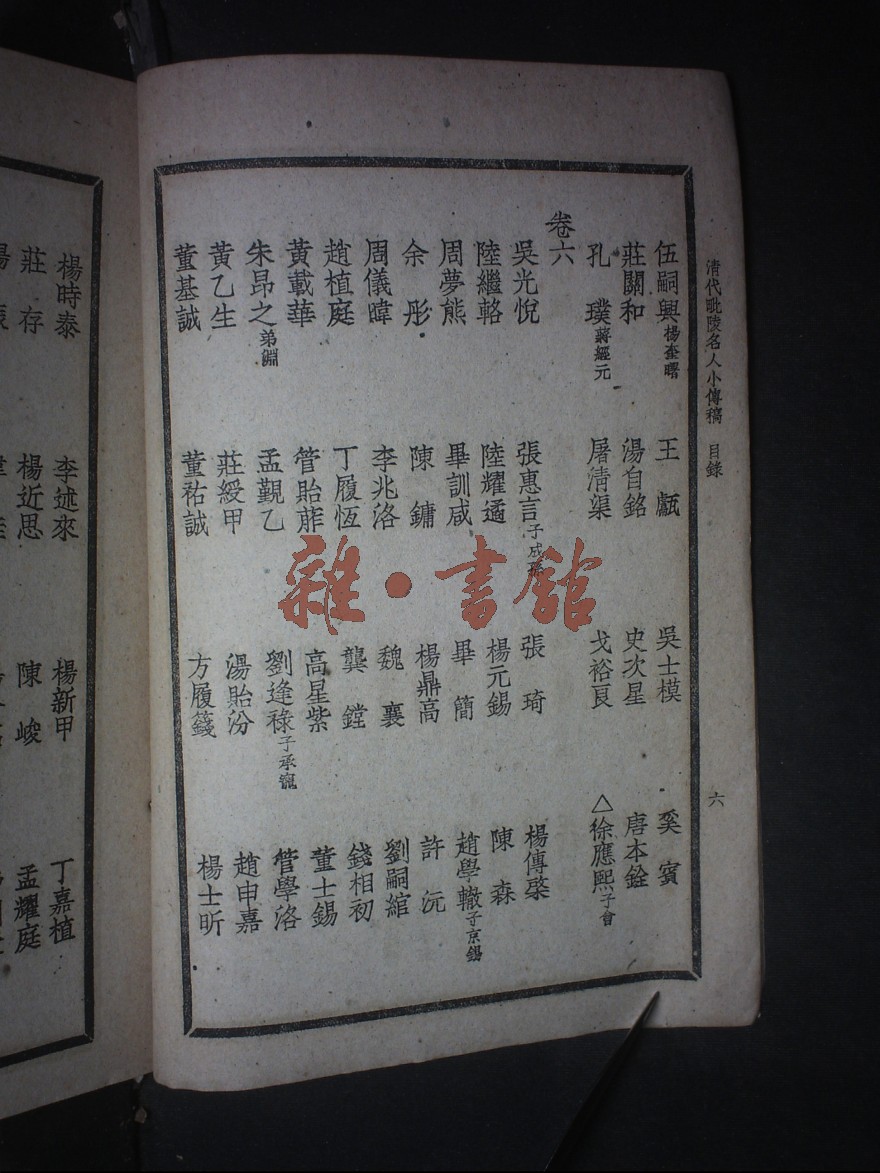 清代毗陵名人小傳稿 目錄 六
伍嗣興楊奎曙 王甗 吳士模 奚賓
莊關和 湯自銘 史次星 唐本銓
孔璞蔣經元 屠清渠 戈裕良 △徐應熙子會
卷六
吳光悅 張惠言子成孫 張琦 楊傳棨
陸繼輅 陸耀遹 楊元錫 陳森
周夢熊 畢訓咸 畢簡 趙學轍子京錫
余彤 陳鏞 楊鼎高 許沅
周儀暐 李兆洛 魏襄 劉嗣綰
趙植庭 丁履恆 龔鏜 錢相初
黃載華 管貽葄 高星紫 董士錫
朱昂之弟淵 孟覲乙 劉逢祿子承寵 管學洛
黃乙生 莊綬甲 湯貽汾 趙申嘉
董基誠 董祐誠 方履籛 楊士昕
楊時泰 李述來 楊新甲 丁嘉植
莊存 楊近思 陳峻 孟耀庭
雜·書館